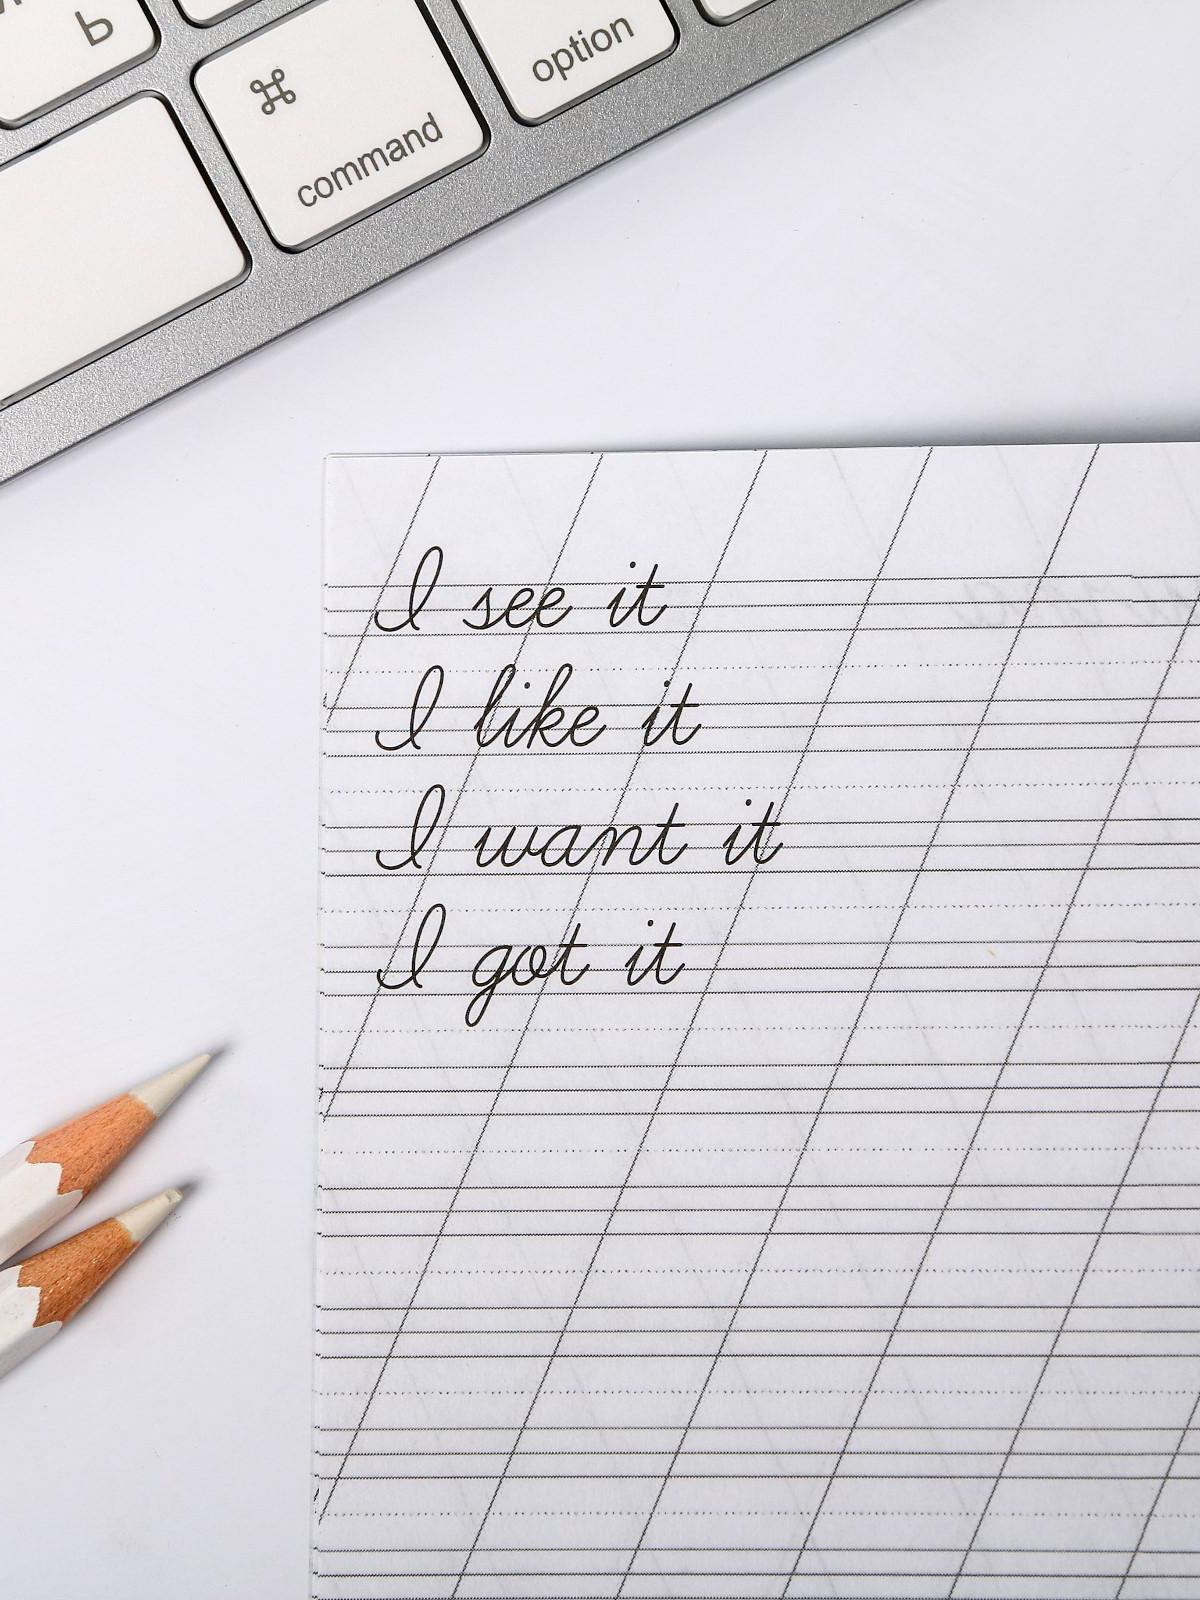 Ь
⌘
command
option
I see it
I like it
I want it
I got it